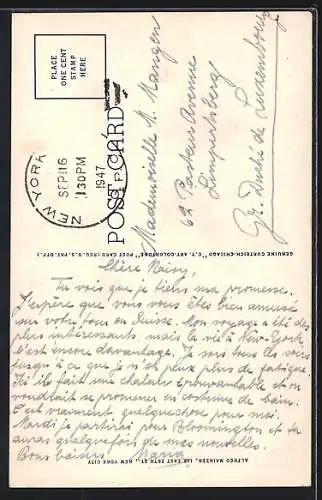 PLACE
ONE CENT
STAMP
HERE
POST CARD
NEW YORK
SEP 16
130 PM
1947
Mademoiselle N. Mangen
62 Pasteur Avenue
Limpertsberg
Gr. Duché de Luxembourg
GENUINE CURTEICH-CHICAGO "C.T. ART-COLORTONE" POST CARD (REG. U.S. PAT. OFF.)
Chère Naisy,
Tu vois que je tiens ma promesse.
J'espère que vous vous êtes bien amusé
sur votre tour en Suisse. Mon voyage a été des
plus intéressants mais la vie à New-York
c'est encore davantage. Je sors tous les soirs
jusqu'à ce que je n'en peux plus de fatigue.
Ici il fait une chaleur épouvantable et on
voudrait se promener en costume de bain.
C'est vraiment quelquechose pour moi.
Mardi je partirai pour Bloomington et tu
auras quelquefois de mes nouvelles.
Bons baisers Maria
ALFRED MAINZER, 118 EAST 28TH ST., NEW YORK CITY